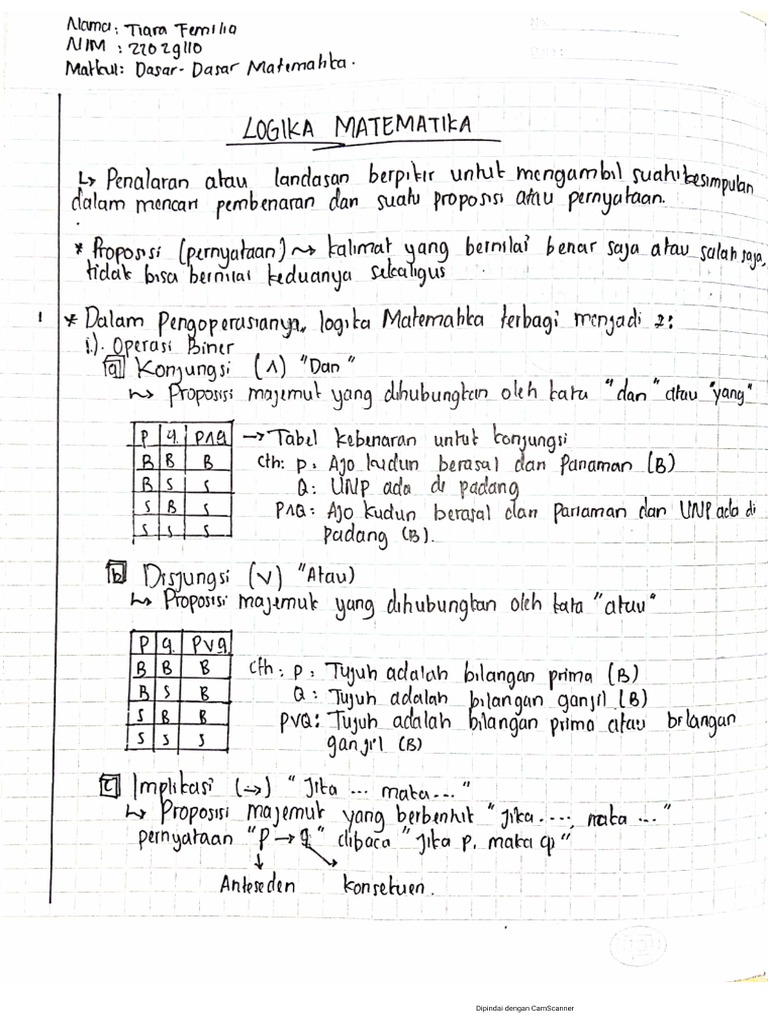 Nama: Tiara Femilia
NIM : 22029110
Matkul: Dasar-Dasar Matematika.
LOGIKA MATEMATIKA
↳ Penalaran atau landasan berpikir untuk mengambil suatu kesimpulan
dalam mencari pembenaran dari suatu proposisi atau pernyataan.
* Proposisi (pernyataan) ⤳ kalimat yang bernilai benar saja atau salah saja,
tidak bisa bernilai keduanya sekaligus
1 * Dalam Pengoperasianya, logika Matematika terbagi menjadi 2:
1.). Operasi Biner
a Konjungsi (∧) "Dan"
⤳ Proposisi majemuk yang dihubungkan oleh kata "dan" atau "yang"
P q. P∧q → Tabel kebenaran untuk konjungsi
B B B cth: p: Ajo kudun berasal dari Panaman (B)
B S S Q: UNP ada di padang
S B S P∧Q: Ajo kudun berasal dari Pariaman dan UNP ada di
S S S padang (B).
b Disjungsi (∨) "Atau)
↳ Proposisi majemuk yang dihubungkan oleh kata "atau"
P q. P∨q
B B B cth: p: Tujuh adalah bilangan prima (B)
B S B Q: Tujuh adalah bilangan ganjil (B)
S B B P∨Q: Tujuh adalah bilangan prima atau bilangan
S S S ganjil (B)
c Implikasi (→) "Jika ... maka..."
↳ Proposisi majemuk yang berbentuk "Jika ...., maka ..."
pernyataan "P → q" dibaca "Jika p, maka q"
Anteseden konsekuen.
Dipindai dengan CamScanner